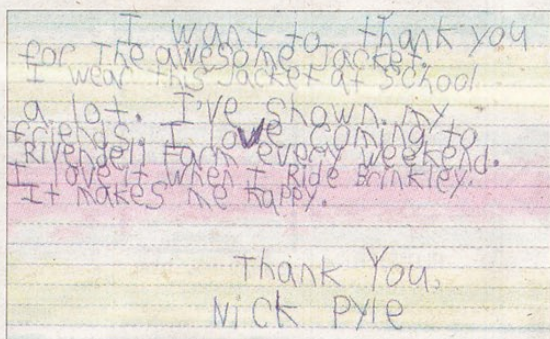 I want to thank you
for the awesome Jacket.
I wear this Jacket at School
a lot. I've shown my
friends. I love coming to
Rivendell Farm every weekend.
I love it when I Ride Brinkley.
It makes me happy.
Thank You,
Nick Pyle